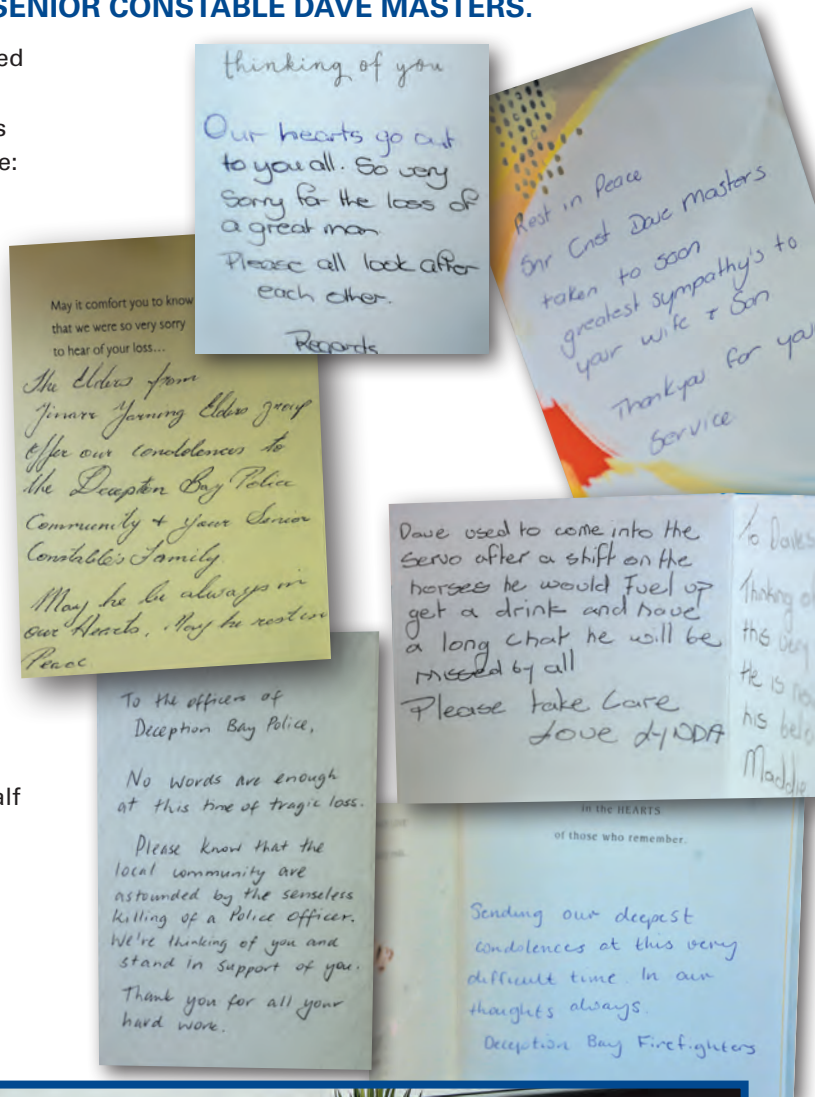 SENIOR CONSTABLE DAVE MASTERS.
thinking of you
Our hearts go out
to you all. So very
Sorry for the loss of
a great man.
Please all look after
each other.
Regards
Rest in Peace
Snr Cnst Dave Masters
taken to soon
greatest sympathy's to
your wife & Son
Thankyou for your
Service
May it comfort you to know
that we were so very sorry
to hear of your loss...
The Elders from
Yarning Elders group
Offer our condolences to
the Deception Bay Police
Community + your Senior
Constable's Family
May he be always in
our Hearts, May he rest in
Peace
Dave used to come into the
servo after a shift on the
horses he would Fuel up
get a drink and have
a long chat he will be
missed by all
Please take Care
Love LyNDA
To
this very
He is
his
Maddie
To the officers of
Deception Bay Police,
No words are enough
at this time of tragic loss.
Please know that the
local community are
astounded by the senseless
killing of a Police Officer.
We're thinking of you and
stand in support of you.
Thank you for all your
hard work.
in the HEARTS
of those who remember.
Sending our deepest
condolences at this very
difficult time. In our
thoughts always.
Deception Bay Firefighters